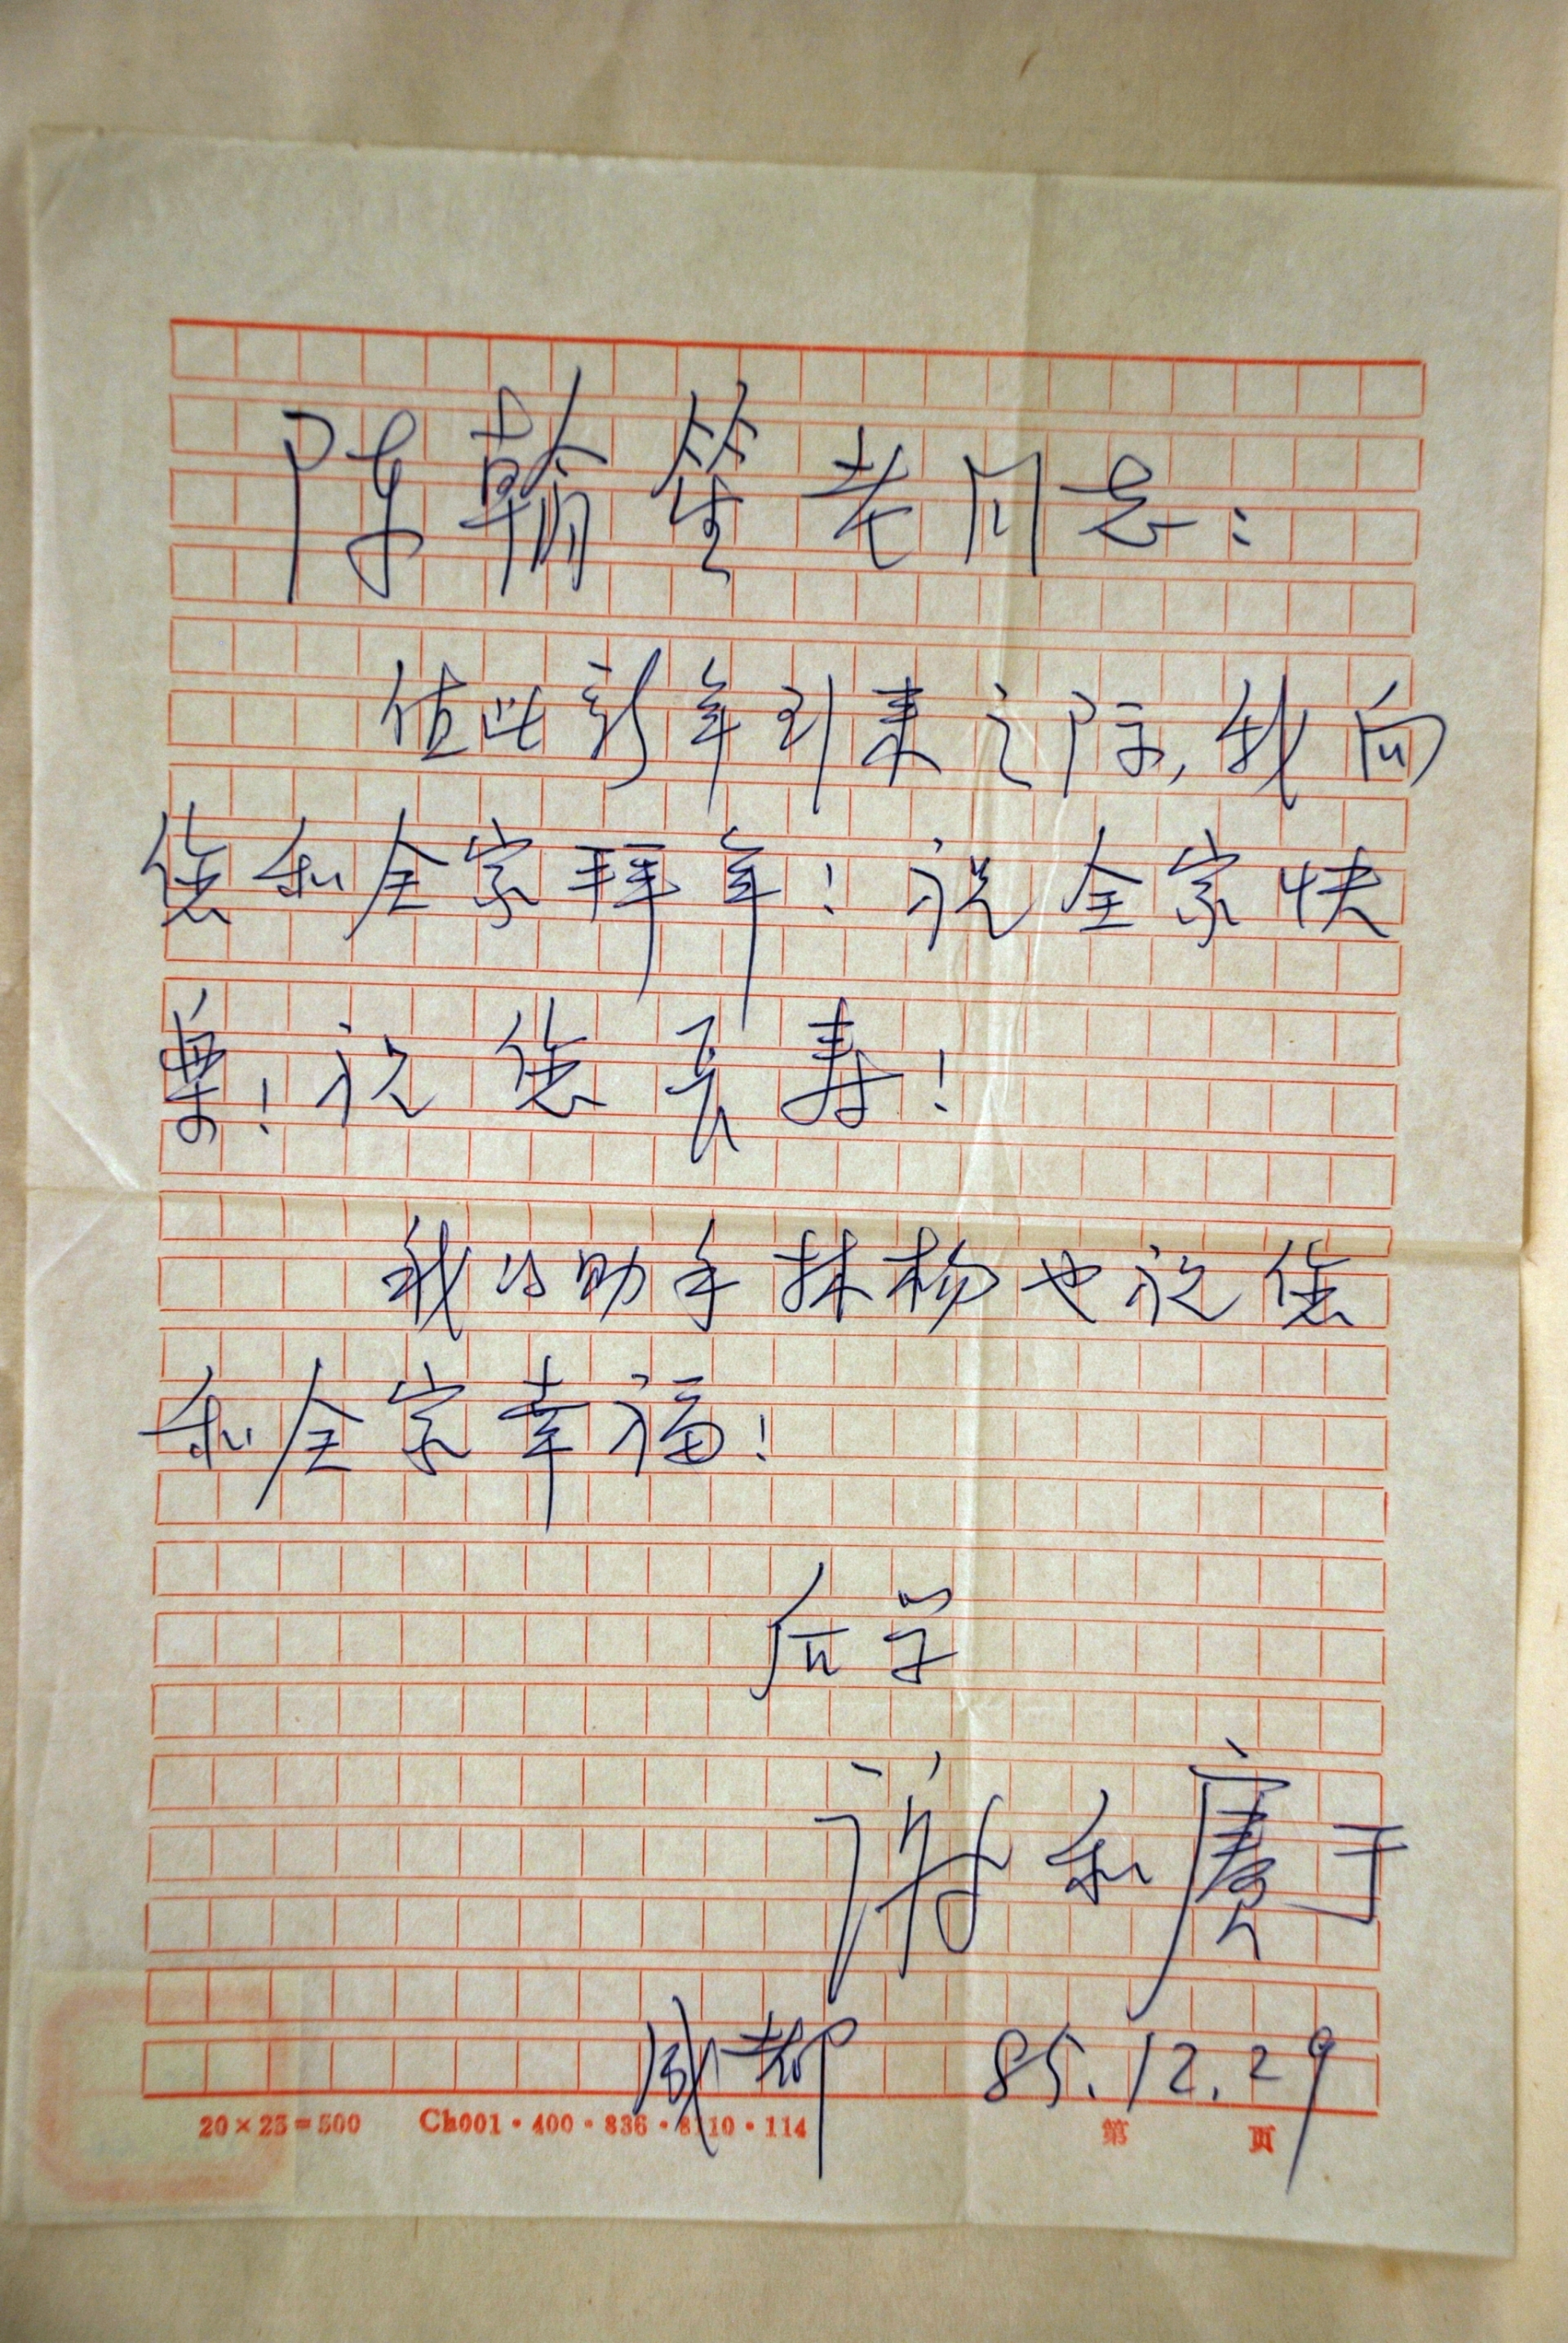 陈翰笙老同志：
值此新年到来之际，我向
您和全家拜年！祝全家快
乐！祝您长寿！
我的助手林杨也祝您
和全家幸福！
后学
谢和赓于
成都 85.12.29
20×25=500 Ch001·400·836·8110·114 第 页